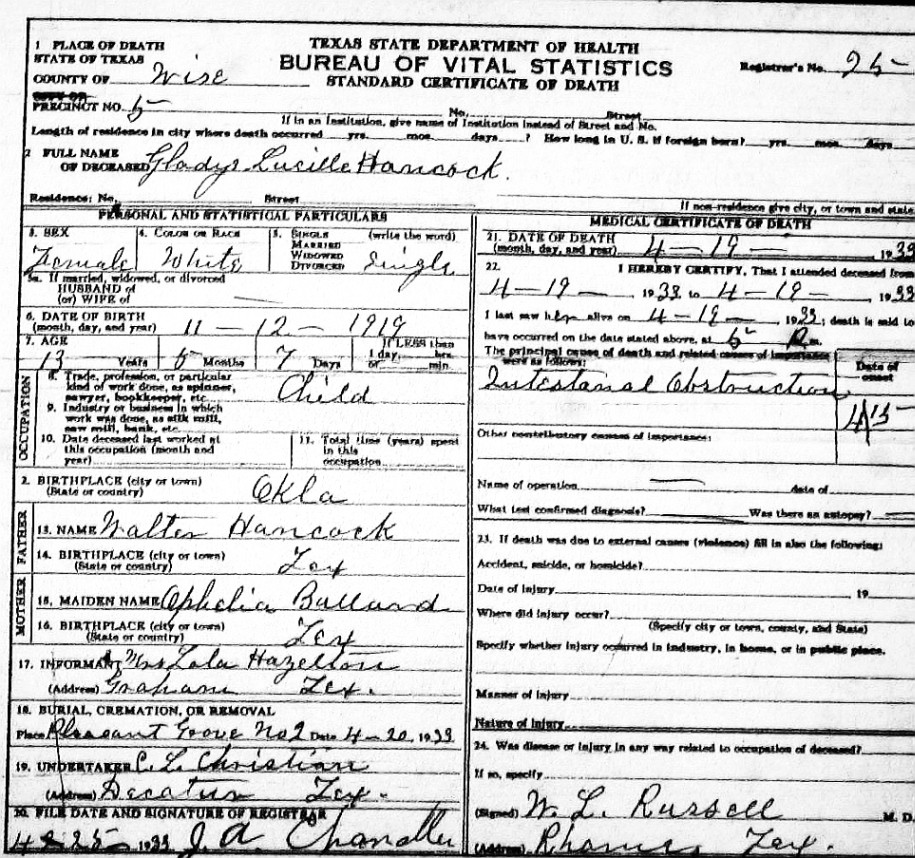 TEXAS STATE DEPARTMENT OF HEALTH
BUREAU OF VITAL STATISTICS
STANDARD CERTIFICATE OF DEATH
Registrar's No. 25
1 PLACE OF DEATH
STATE OF TEXAS
COUNTY OF Wise
CITY OR
PRECINCT NO. 5 No. Street
If in an Institution, give name of Institution instead of Street and No.
Length of residence in city where death occurred yrs. mos. days ? How long in U. S. if foreign born? yrs. mos. days
2 FULL NAME
OF DECEASED Gladys Lucille Hancock.
Residence: No. Street
If non-residence give city, or town and state
PERSONAL AND STATISTICAL PARTICULARS
3. SEX
Female
4. COLOR OR RACE
White
5. SINGLE (write the word)
MARRIED
WIDOWED
DIVORCED Single
5a. If married, widowed, or divorced
HUSBAND of
(or) WIFE of
6. DATE OF BIRTH
(month, day, and year) 11 - 12 - 1919
7. AGE
13 Years 5 Months 7 Days
If LESS than
1 day, hrs.
or min.
OCCUPATION
8. Trade, profession, or particular
kind of work done, as spinner,
sawyer, bookkeeper, etc. Child
9. Industry or business in which
work was done, as silk mill,
saw mill, bank, etc.
10. Date deceased last worked at
this occupation (month and
year)
11. Total time (years) spent
in this
occupation
2. BIRTHPLACE (city or town)
(State or country) Okla
FATHER
13. NAME Walter Hancock
14. BIRTHPLACE (city or town)
(State or country) Tex
MOTHER
15. MAIDEN NAME Ophelia Ballard
16. BIRTHPLACE (city or town)
(State or country) Tex
17. INFORMANT Mrs Lola Hazelton
(Address) Graham Tex.
18. BURIAL, CREMATION, OR REMOVAL
Place Pleasant Grove No 2 Date 4-20. 1933
19. UNDERTAKER C. L. Christian
(Address) Decatur Tex.
20. FILE DATE AND SIGNATURE OF REGISTRAR
1933 J. A. Chandler
MEDICAL CERTIFICATE OF DEATH
21. DATE OF DEATH
(month, day, and year) 4 - 19 - 1933
22. I HEREBY CERTIFY, That I attended deceased from
4 - 19 - , 1933 to 4 - 19 - , 1933
I last saw her alive on 4 - 19 - , 1933; death is said to
have occurred on the date stated above, at 5 P.m.
The principal cause of death and related causes of importance
were as follows:
Date of
onset
Intestanal Obstruction
4/15
Other contributory causes of importance:
Name of operation date of
What test confirmed diagnosis? Was there an autopsy?
23. If death was due to external causes (violence) fill in also the following:
Accident, suicide, or homicide?
Date of injury 19
Where did injury occur?
(Specify city or town, county, and State)
Specify whether injury occurred in industry, in home, or in public place.
Manner of injury
Nature of injury
24. Was disease or injury in any way related to occupation of deceased?
If so, specify
(Signed) W. L. Russell M. D.
(Address) Rhome, Tex.